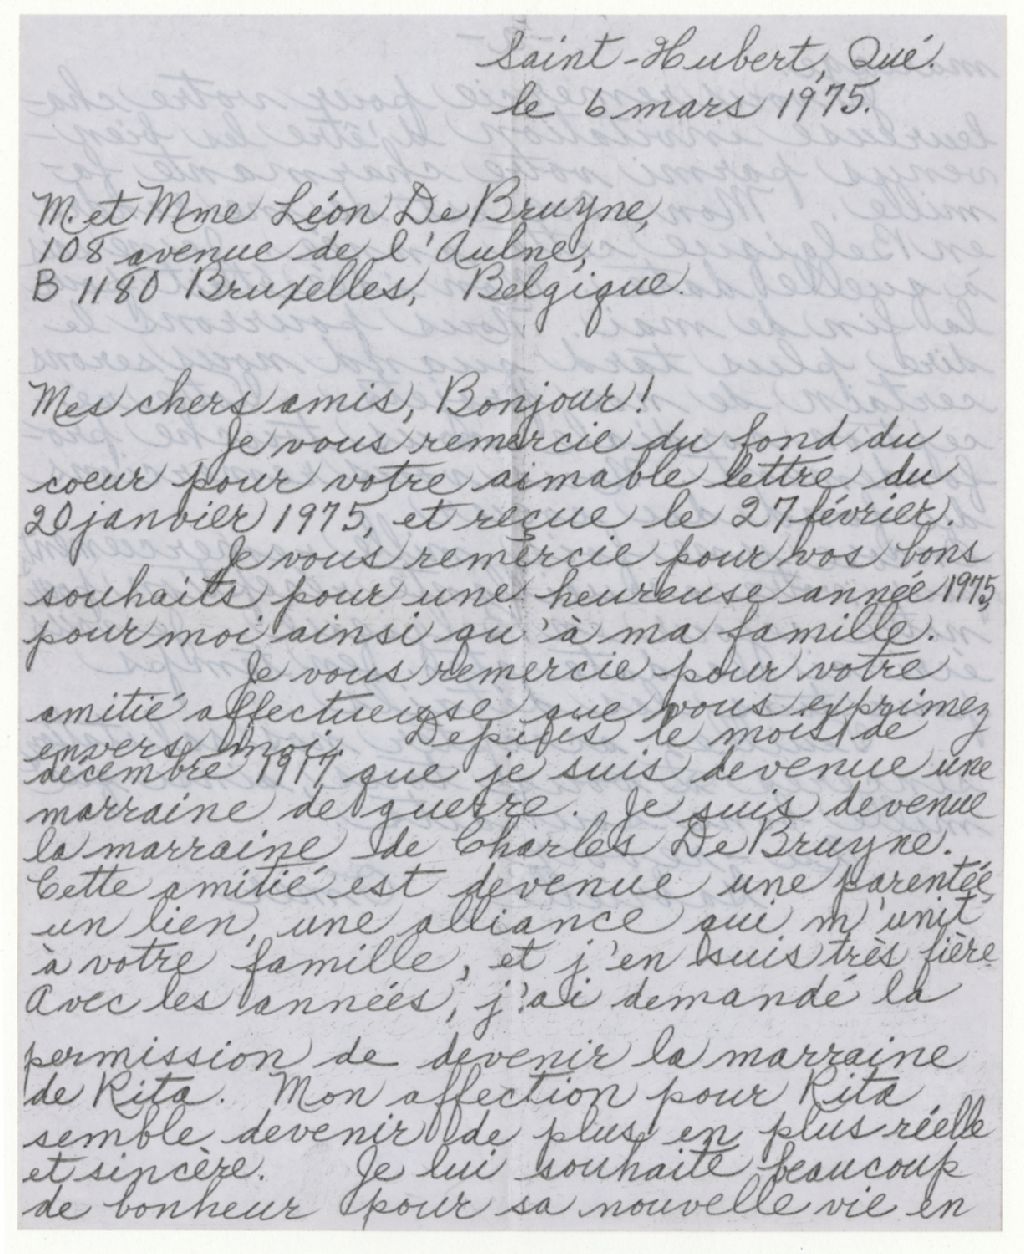 Saint-Hubert, Qué.
le 6 mars 1975.
M. et Mme Léon De Bruyne,
108 avenue de l'Aulne,
B 1180 Bruxelles, Belgique.
Mes chers amis, Bonjour!
Je vous remercie du fond du
coeur pour votre aimable lettre du
20 janvier 1975, et reçue le 27 février.
Je vous remercie pour vos bons
souhaits pour une heureuse année 1975,
pour moi ainsi qu'à ma famille.
Je vous remercie pour votre
amitié affectueuse que vous exprimez
envers moi. Depuis le mois de
décembre 1917 que je suis devenue une
marraine de guerre. Je suis devenue
la marraine de Charles De Bruyne.
Cette amitié est devenue une parentée,
un lien, une alliance qui m'unit
à votre famille, et j'en suis très fière.
Avec les années, j'ai demandé la
permission de devenir la marraine
de Rita. Mon affection pour Rita
semble devenir de plus en plus réelle
et sincère. Je lui souhaite beaucoup
de bonheur pour sa nouvelle vie en